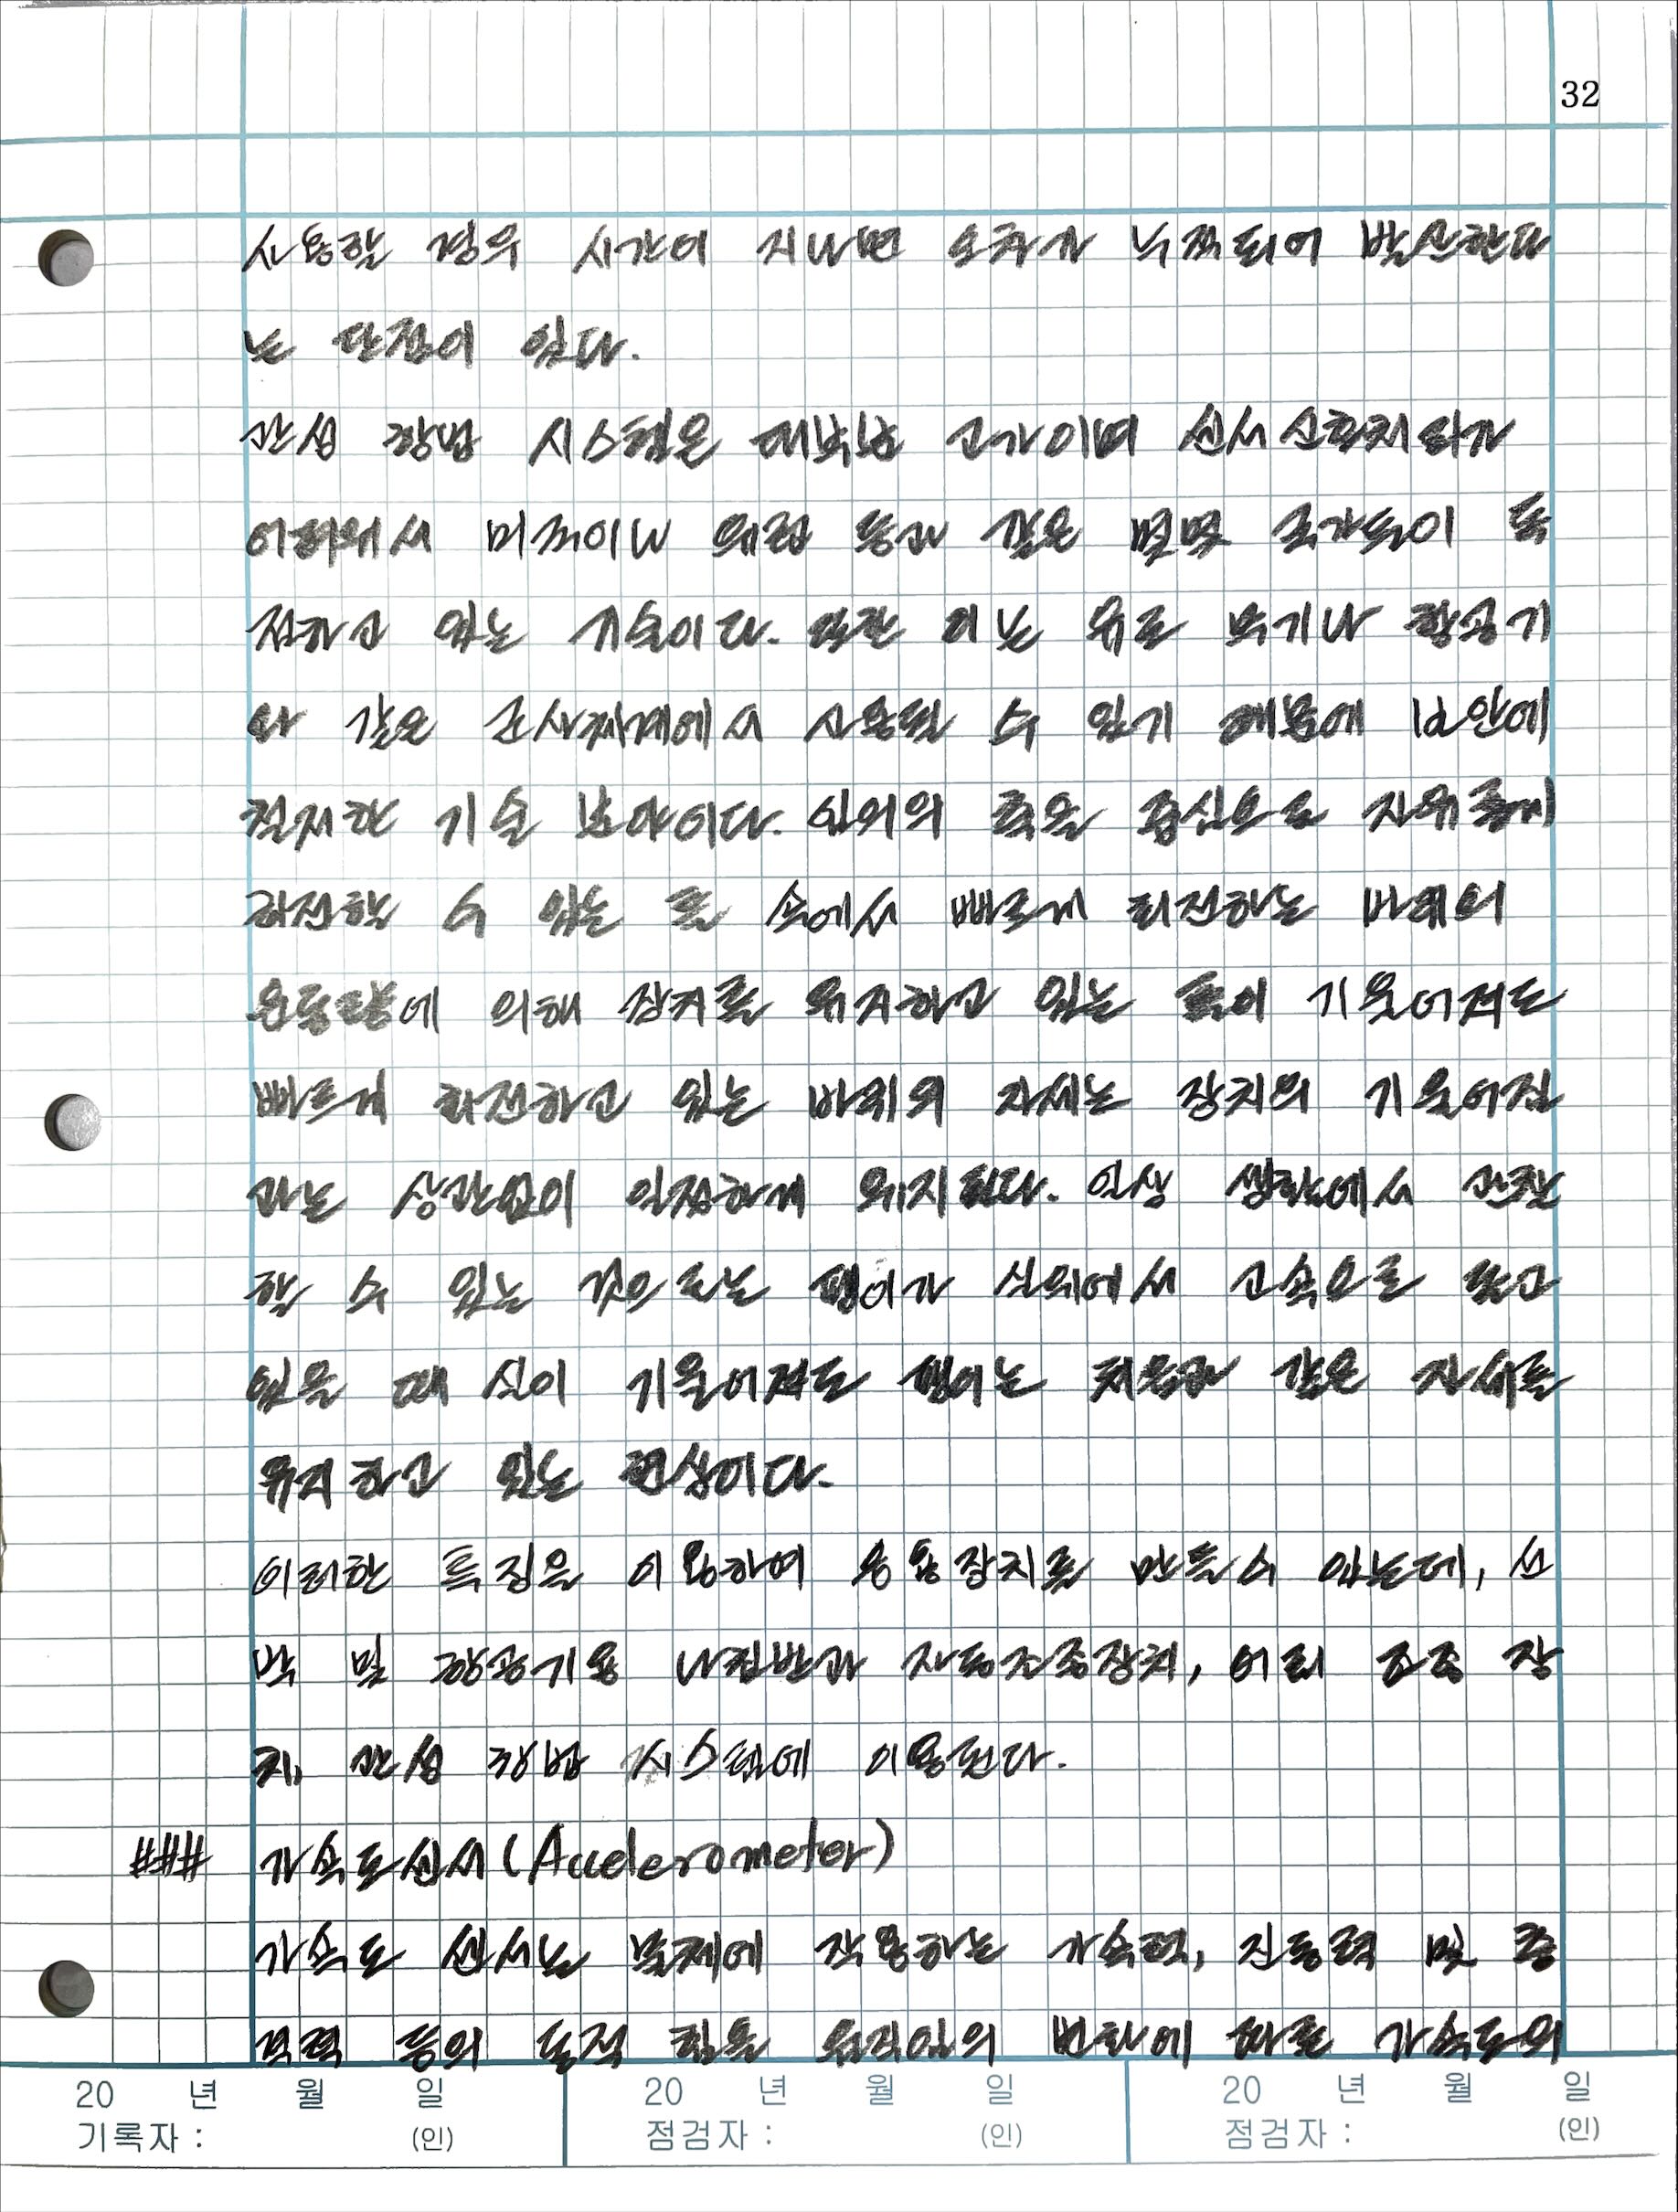 32
사용할 경우 시간이 지나면 오차가 누적되어 발산한다
는 단점이 있다.
관성 항법 시스템은 대부분 고가이며 센서 신호처리가
어려워서 미국이나 유럽 등과 같은 몇몇 국가들이 독
점하고 있는 기술이다. 또한 이는 유도 무기나 항공기
와 같은 군사체계에서 사용될 수 있기 때문에 보안에
철저한 기술 분야이다. 임의의 축을 중심으로 자유롭게
회전할 수 있는 틀 속에서 빠르게 회전하는 바퀴의
운동량에 의해 장치를 유지하고 있는 틀이 기울어져도
빠르게 회전하고 있는 바퀴의 자세는 장치의 기울어짐
과는 상관없이 일정하게 유지된다. 일상 생활에서 관찰
할 수 있는 것으로는 팽이가 식위에서 고속으로 돌고
있을 때 식이 기울어져도 팽이는 처음과 같은 자세를
유지하고 있는 현상이다.
이러한 특징을 이용하여 응용장치를 만들수 있는데, 선
박 및 항공기용 나침반과 자동조종장치, 어뢰 조종 장
치, 관성 항법 시스템에 이용된다.
### 가속도센서(Accelerometer)
가속도 센서는 물체에 작용하는 가속력, 진동력 및 충
격력 등의 동적 힘을 움직임의 변화에 따른 가속도의
20 년 월 일 20 년 월 일 20 년 월 일
기록자 : (인) 점검자 : (인) 점검자 : (인)